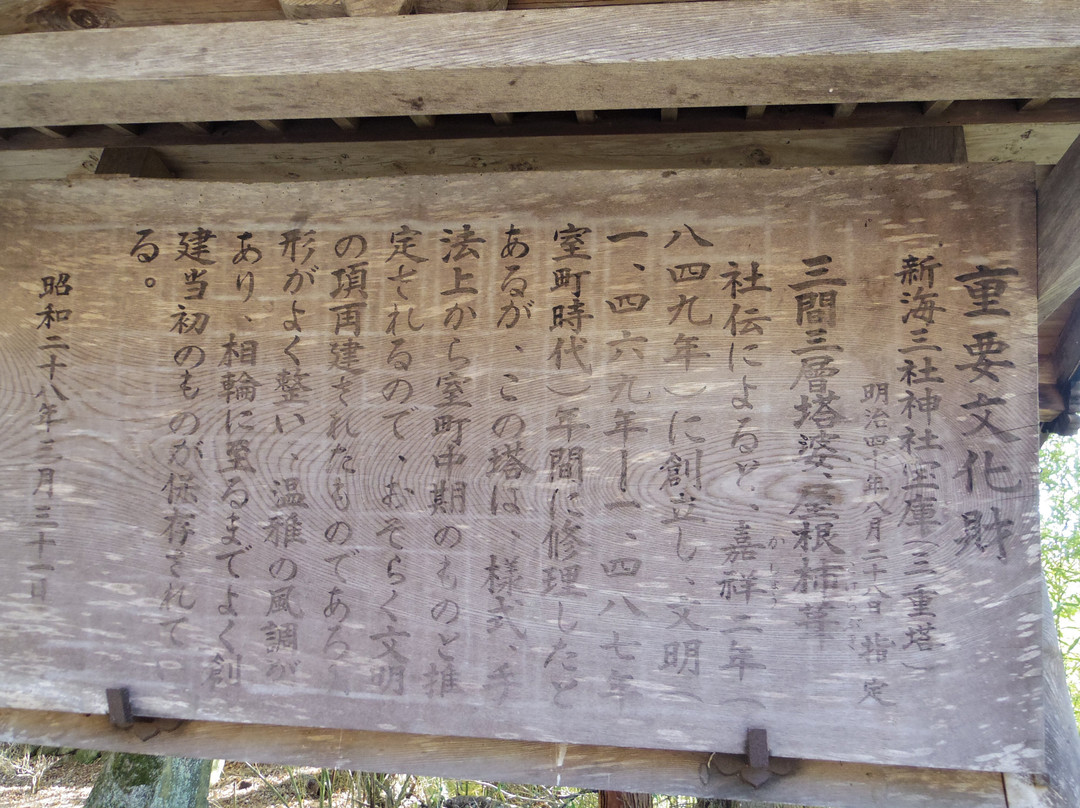 重要文化財
新海三社神社宝庫(三重塔)
明治四十年八月二十八日指定
三間三層塔婆、屋根柿葺
社伝によると、嘉祥二年(
八四九年)に創立し、文明(
一、四六九年ー一、四八七年
室町時代)年間に修理したと
あるが、この塔は、様式、手
法上から室町中期のものと推
定されるので、おそらく文明
の項再建されたものである
形がよく整い、温雅の風調が
あり、相輪に至るまでよく創
建当初のものが保存されて
る。
かしょう
昭和二十八年三月三十一日